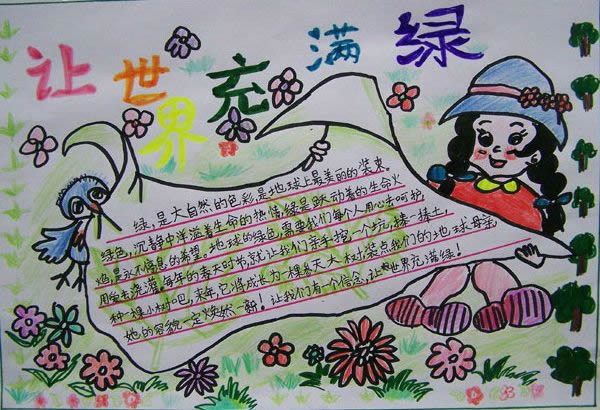 让世界充满绿
绿,是大自然的色彩,是地球上最美的的装束。
绿色,沉静中洋溢着生命的热情,绿是跃动着的生命火
焰,是永不停息的希望。地球的绿色,需要我们每个人用心去呵护,
去浇灌,每年的春天时节,就让我们亲手挖一个坑,捧一捧土,
种一棵小树吧,来年,它将成长为一棵参天大树,装点我们的地球母亲,
她的容貌一定焕然一新!让我们有一个信念,让世界充满绿!